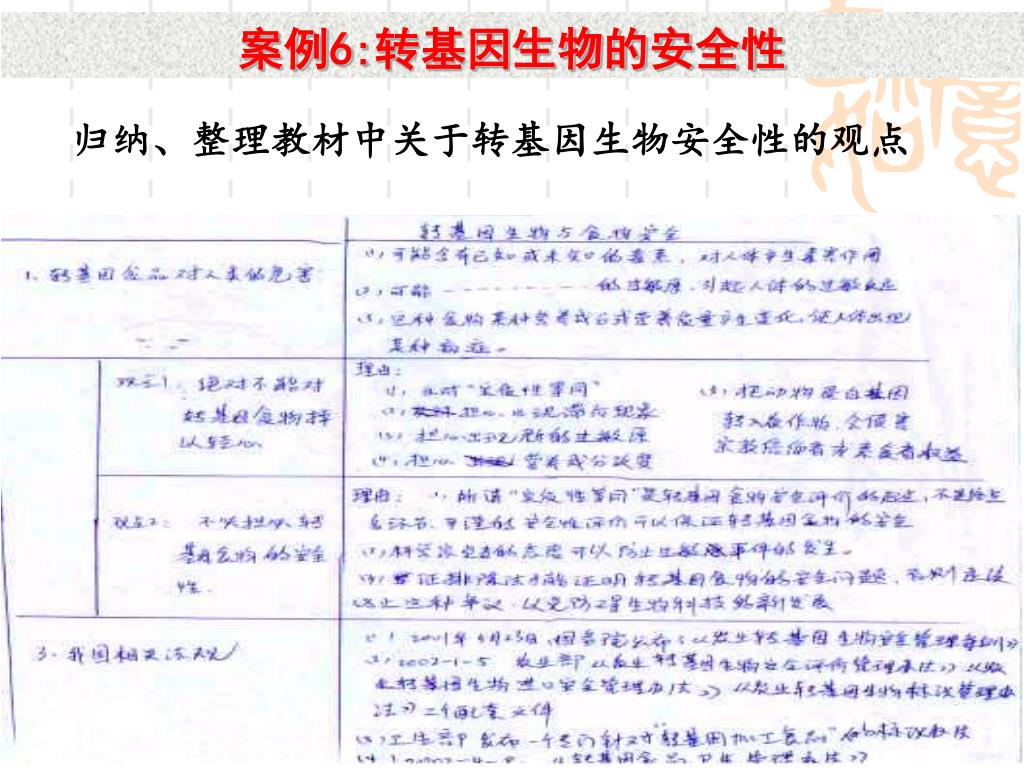 案例6:转基因生物的安全性
归纳、整理教材中关于转基因生物安全性的观点
转基因生物与食物安全
1、转基因食品对人类的危害
(1)可能含有已知或未知的毒素，对人体产生毒害作用
(2)可能----------的过敏原，引起人体的过敏反应
(3)这种食物某种营养成分或营养质量产生变化，使人体出现
某种病症。
观点1：绝对不能对
转基因食物掉
以轻心
理由:
(1)反对"实质性等同"
(2)担心出现滞后现象
(3)担心出现新的过敏源
(4)担心营养成分改变
(5)把动物蛋白基因
转入农作物，会侵害
宗教信仰者或素食者权益
观点2：不必担心转
基因食物的安全
性.
理由：1、所谓"实质性等同"是转基因食物安全评价的起点，不是终点
多环节、严谨的安全性评价可以保证转基因食物的安全
(2)科学家负责的态度可以防止过敏事件的发生。
转基因食物的安全问题，否则应该
停止这种争议，以免防碍生物科技的新发展
3、我国相关法规
国务院公布《农业转基因生物安全管理条例》
2002-1-5 农业部《农业转基因生物安全评价管理办法》《农
业转基因生物进口安全管理办法》《农业转基因生物标识管理办
法》三个配套文件
(3)卫生部发布一个专门针对"转基因加工食品"的标识办法